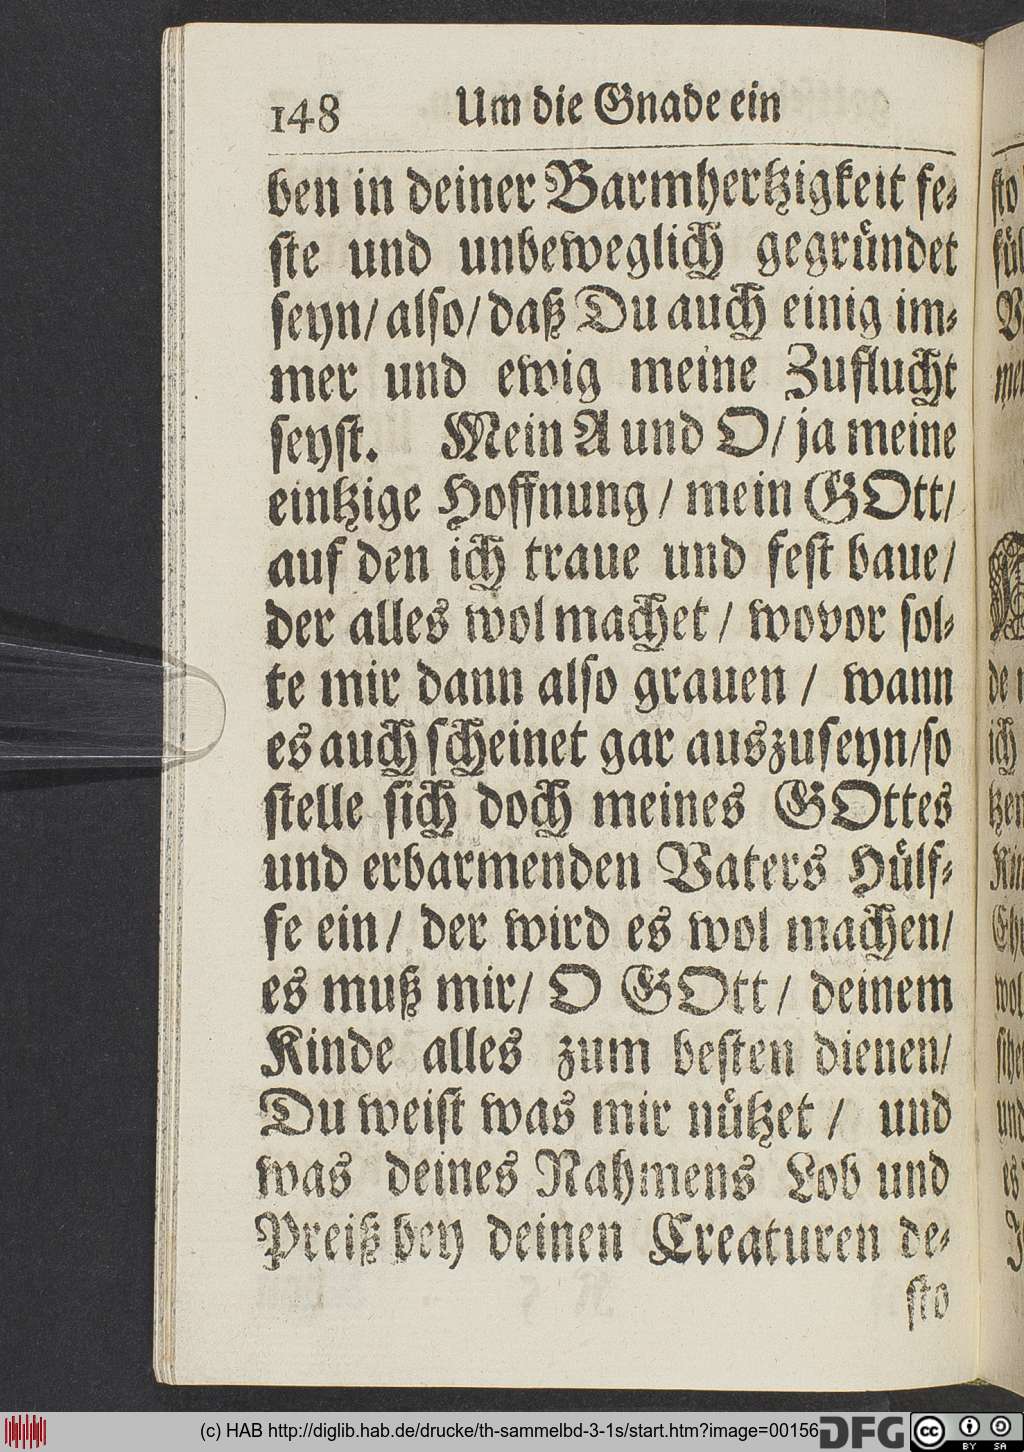 148 Um die Gnade ein
ben in deiner Barmhertzigkeit fe-
ste und unbeweglich gegründet
seyn/ also/ daß Du auch einig im-
mer und ewig meine Zuflucht
seyst. Mein A und O/ ja meine
eintzige Hoffnung / mein GOtt/
auf den ich traue und fest baue/
der alles wol machet / wovor sol-
te mir dann also grauen / wann
es auch scheinet gar auszuseyn/so
stelle sich doch meines GOttes
und erbarmenden Vaters Hülf-
fe ein/ der wird es wol machen/
es muß mir/ O GOtt / deinem
Kinde alles zum besten dienen/
Du weist was mir nützet / und
was deines Nahmens Lob und
Preiß bey deinen Creaturen de-
sto
(c) HAB http://diglib.hab.de/drucke/th-sammelbd-3-1s/start.htm?image=00156
DFG
cc BY SA